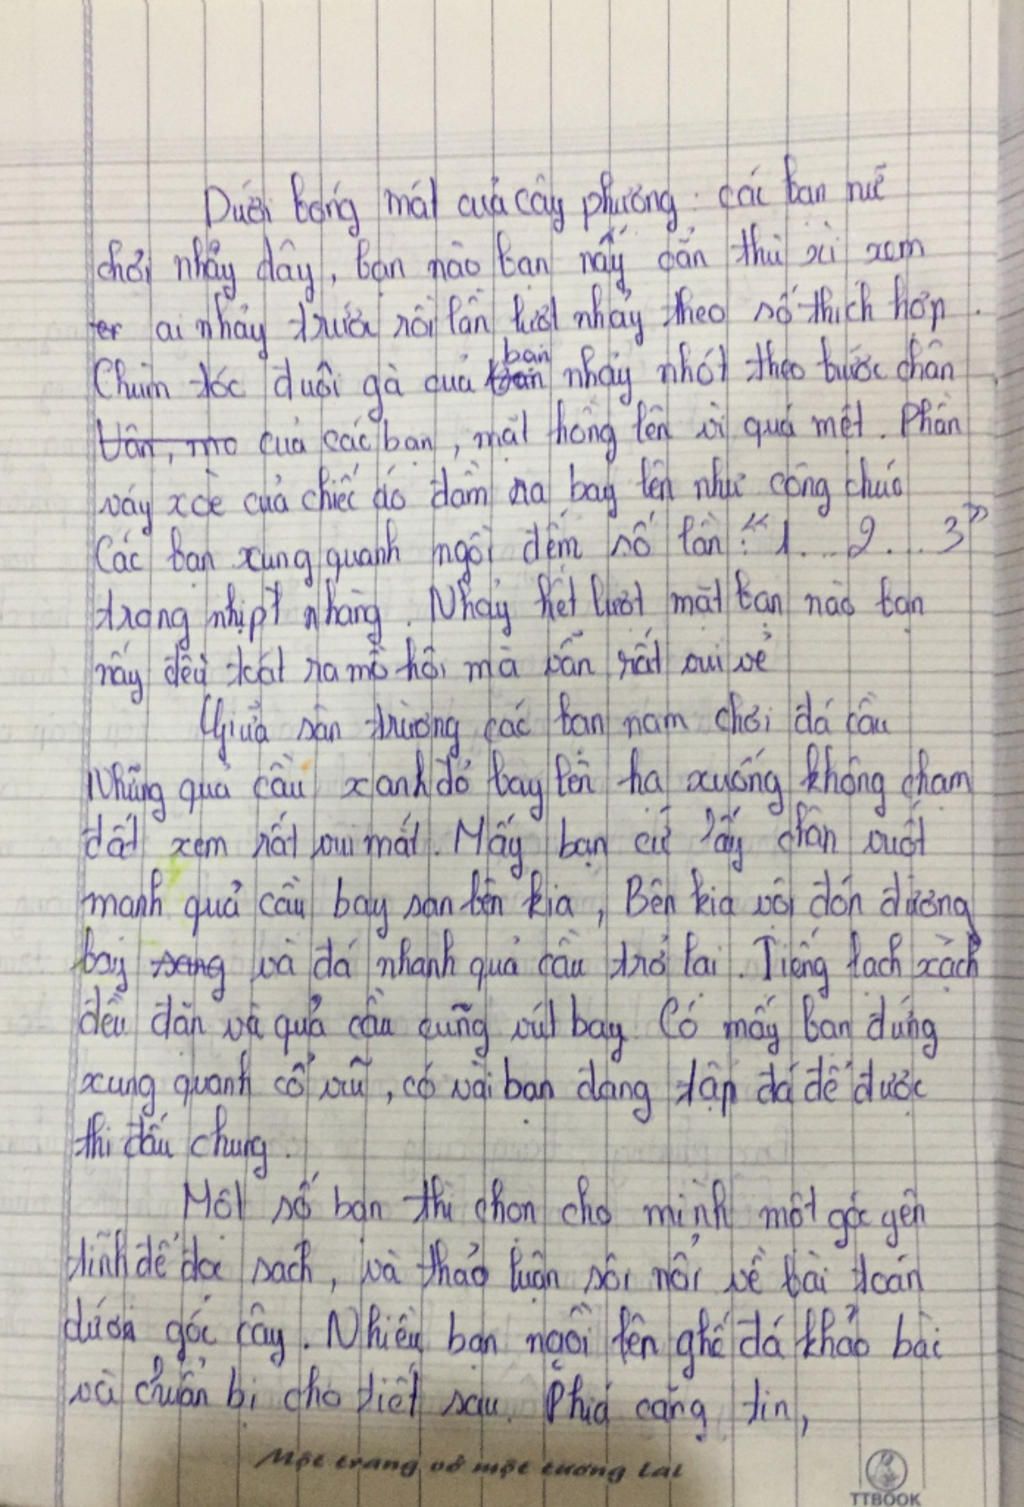 Dưới bóng mát của cây phượng các bạn nữ
chơi nhảy dây, bạn nào bạn nấy oẳn thù xì xem
ai nhảy trước rồi lần lượt nhảy theo số thích hợp.
Chùm tóc đuôi gà của bạn nhảy nhót theo bước chân
của các bạn, mặt hồng lên vì quá mệt. Phần
váy xoè của chiếc áo đầm ra bay lên như công chúa
Các bạn xung quanh ngồi đếm số lần: "1... 2... 3"
trong nhịp nhàng. Nhảy hết lượt mặt bạn nào bạn
nấy đều toát ra mồ hôi mà vẫn rất vui vẻ
Giữa sân trường các bạn nam chơi đá cầu
Những quả cầu xanh đỏ bay lên hạ xuống không chạm
đất xem rất vui mắt. Mấy bạn cứ lấy chân vuột
mạnh quả cầu bay san bên kia, Bên kia vội đón đường
bay và đá nhanh quả cầu trở lại. Tiếng lách xách
đều đặn và quả cầu cũng vút bay. Có mấy bạn đứng
xung quanh cổ vũ, có vài bạn đang tập đá để được
thi đấu chung.
Một số bạn thì chọn cho mình một góc yên
tĩnh để đọc sách, và thảo luận sôi nổi về bài toán
dưới gốc cây. Nhiều bạn ngồi lên ghế đá khảo bài
và chuẩn bị cho tiết sau. Phía căng tin,
Một trang vở một tương lai
TTBOOK